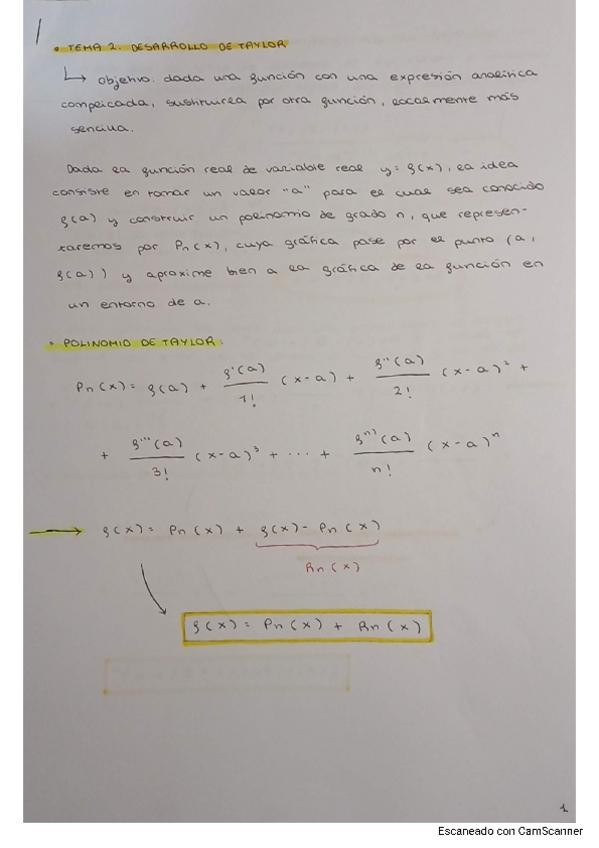 • TEMA 2. DESARROLLO DE TAYLOR
↳ objetivo: dada una función con una expresión analítica
complicada, sustituirla por otra función, localmente más
sencilla.
Dada la función real de variable real y = f(x), la idea
consiste en tomar un valor "a" para el cual sea conocido
f(a) y construir un polinomio de grado n, que represen-
taremos por Pn(x), cuya gráfica pase por el punto (a,
f(a)) y aproxime bien a la gráfica de la función en
un entorno de a.
• POLINOMIO DE TAYLOR:
Pn(x) = f(a) + f'(a)/1! (x-a) + f''(a)/2! (x-a)² +
+ f'''(a)/3! (x-a)³ + ... + fⁿ⁾(a)/n! (x-a)ⁿ
→ f(x) = Pn(x) + f(x) - Pn(x)
Rn(x)
f(x) = Pn(x) + Rn(x)
1
Escaneado con CamScanner